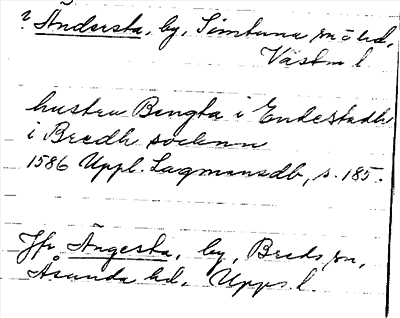 ? Ändersta, by, Simtuna sn o hd,
Västm l
hustru Bengta i Endestadh
i Bredh socknn
1586 Uppl. Lagmansdb, s. 185.
Jfr Ängesta, by, Breds sn,
Åsunda hd, Upps. l.